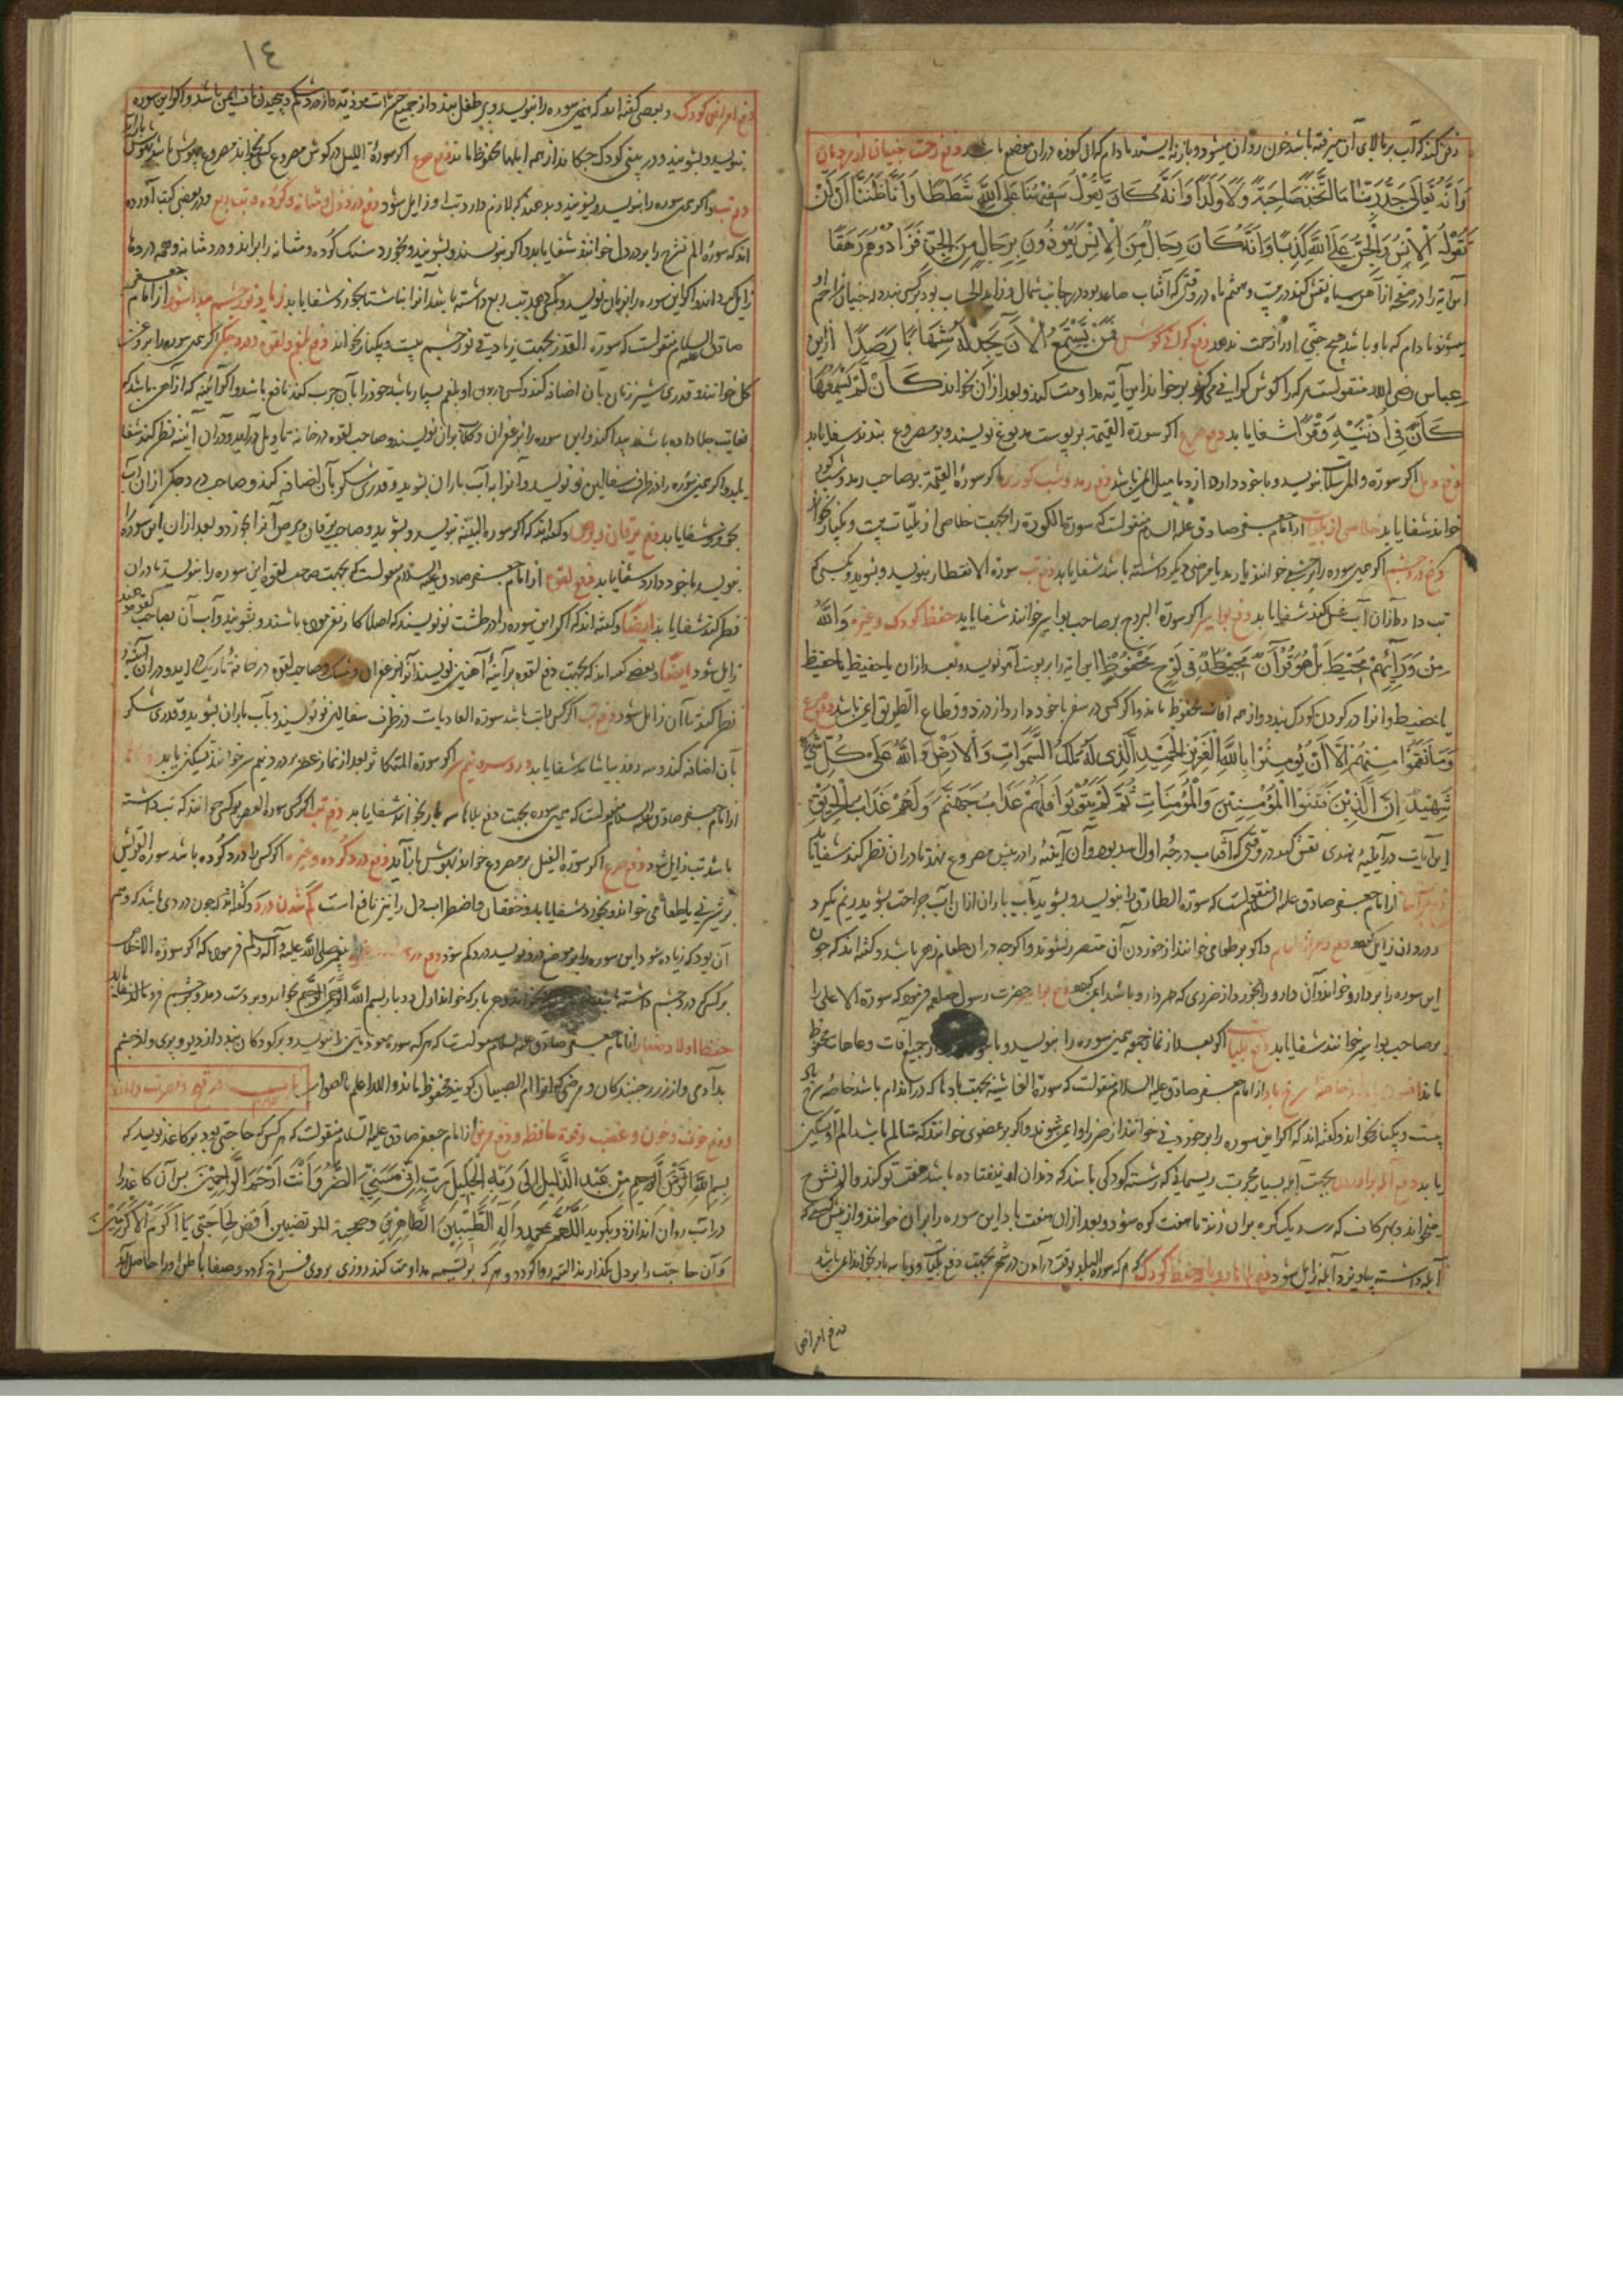 دفن کنند که آب بر بالای آن میرفته باشد خون روان میشود و باز نه ایستد مادام که آن کوزه در آن موضع باشد دفع زحمت جنیان از مردمان
وَاَنَّهُ تَعَالٰی جَدُّ رَبِّنَا مَا اتَّخَذَ صَاحِبَةً وَلَا وَلَدًا وَاَنَّهُ كَانَ یَقُولُ سَفِیهُنَا عَلَی اللّٰهِ شَطَطًا وَاَنَّا ظَنَنَّا اَنْ لَنْ
تَقُولَ الْاِنْسُ وَالْجِنُّ عَلَی اللّٰهِ كَذِبًا وَاَنَّهُ كَانَ رِجَالٌ مِنَ الْاِنْسِ یَعُوذُونَ بِرِجَالٍ مِنَ الْجِنِّ فَزَادُوهُمْ رَهَقًا
این آیه را در صفحه از آهن سیاه نقش کنند در بیست و هشتم ماه در وقتی که آفتاب صاعد بود در جانب شمال
میشوند مادام که با او باشد هیچ جنی او را زحمت ندهد دفع گرانی گوش فَمَنْ یَسْتَمِعِ الْاٰنَ یَجِدْ لَهُ شِهَابًا رَصَدًا از ابن
عباس رضی الله منقولست هر که را گوش گرانی میکند بر خواند این آیه مداومت کند و بعد از آن بخواند كَاَنْ لَمْ یَسْمَعْهَا
كَاَنَّ فِی اُذُنَیْهِ وَقْرًا شفا یابد دفع صرع اگر سورة القیمة بر پوست مدبوغ نویسند و بر مصروع بندند شفا یابد
دفع دمل اگر سورة والمرسلات بنویسد و با خود دارد از دمامیل ایمن باشد دفع رمد و شب کوری اگر سورة القیمة بر صاحب رمد و شب کور
خواند شفا یابد خلاصی از بلیات از امام جعفر صادق علیه السلام منقولست که سورة الکورت را بجهت خلاصی از بلیات بیست و یکبار بخواند
دفع درد چشم اگر همین سوره را بر چشم خوانند یا رمد یا مرضی دیگر داشته باشد شفا یابد دفع تب سورة الانفطار بنویسد و بشوید و کسی که
تب دارد از آن آب غسل کند شفا یابد دفع بواسیر اگر سورة البروج بر صاحب بواسیر خوانند شفا یابد حفظ کودک و غیره وَاللّٰهُ
مِنْ وَرَائِهِمْ مُحِیطٌ بَلْ هُوَ قُرْاٰنٌ مَجِیدٌ فِی لَوْحٍ مَحْفُوظٍ این آیه را بر پوست آهو نویسد و بعد از آن یا حفیظ یا حفیظ
یا حفیظ و آنرا در گردن کودک بندد و از همه آفات محفوظ ماند و اگر کسی در سفر با خود دارد از دزد و قطاع الطریق ایمن باشد دفع صرع
وَمَا نَقَمُوا مِنْهُمْ اِلَّا اَنْ یُؤْمِنُوا بِاللّٰهِ الْعَزِیزِ الْحَمِیدِ الَّذِی لَهُ مُلْكُ السَّمٰوَاتِ وَالْاَرْضِ وَاللّٰهُ عَلٰی كُلِّ شَیْءٍ
شَهِیدٌ اِنَّ الَّذِینَ فَتَنُوا الْمُؤْمِنِینَ وَالْمُؤْمِنَاتِ ثُمَّ لَمْ یَتُوبُوا فَلَهُمْ عَذَابُ جَهَنَّمَ وَلَهُمْ عَذَابُ الْحَرِیقِ
این آیات در آیینه هندی نقش کند در وقتی که آفتاب در درجه اول اسد بود و آن آینه را در پیش مصروع نهند تا در آن نظر کند شفا یابد
از امام جعفر صادق علیه السلام منقولست که سورة الطارق را بنویسد و بشوید بآب باران از آن آب جراحت بشوید ریم نگیرد
و اگر بر طعامی خوانند از خوردن آن متضرر نشوند و اگر چه در آن طعام زهر باشد و گفته اند که چون
این سوره را بر دارو خوانند و آن دارو را بخورد از ضرری که در دارو باشد ایمن گردد دفع بواسیر حضرت رسول صلعم فرمود که سورة الاعلی را
بر صاحب بواسیر خوانند شفا یابد دفع بلیات اگر بعد از نماز جمعه همین سوره را بنویسد و با جمیع آفات و عاهات محفوظ
ماند از امام جعفر صادق علیه السلام منقولست که سورة الغاشیة بجهت بادها که در اندام باشد خاصه سرخ باد
بیست و یکبار بخواند و گفته اند که اگر این سوره را بر خوردنی خوانند از ضرر او ایمن شوند و اگر بر عضوی خوانند که متألم باشد الم او تسکین
یابد دفع آبله بر آمدن بجهت آبله بسیار مجربست ریسمانی که رشته کودکی باشد که دندان او نیفتاده باشد هفت تو کند و الم نشرح
میخواند و بهر کاف که رسد یک گره بر آن زند تا هفت گره شود و بعد از آن هفت بار این سوره را بر آن خوانند و از پیش کسی که
آبله داشته بیاویزد آبله زایل شود دفع وبا و حفظ کودک هر که سورة البلد بوقت در آمدن در شهر بجهت دفع بلیات و وبا سه بار بخواند ایمن باشد
دفع امراض
١٤
دفع امراض کودک و بعضی گفته اند که همین سوره را بنویسد و بر طفل بندد از جمیع حشرات موذیه و از درد شکم و پیچیدن ناف ایمن باشد و اگر این سوره
بنویسد و بشویند و در بینی کودک چکانند از همه المها محفوظ ماند دفع صرع اگر سورة اللیل در گوش مصروع کسی بخواند مصروع بیهوش باشد بهوش باز آید
دفع تب و اگر همین سوره را بنویسد و بشویند و بدهند که لازم دارد تب او زایل شود دفع درد دل و مثانه و گرده و تب ربع و در بعضی کتب آورده
اند که سورة الم نشرح را بر درد دل خوانند شفا یابد و اگر بنویسند و بشویند و بخورد سنگ گرده و مثانه را براند و درد مثانه و همه دردها
زایل گرداند و اگر این سوره را بر نان نویسد و بکسی دهد تب ربع داشته باشد آنرا ناشتا بخورد شفا یابد زیادتی نور چشم پیدا شود از امام جعفر
صادق علیه السلام منقولست که سورة القدر بجهت زیادتی نور چشم بیست و یکبار بخواند دفع بلغم و لقوه و درد جگر اگر همین سوره را بر روغن
گل خوانند و قدری شیر زنان بآن اضافه کنند و کسی را که او بلغم بسیار باشد خود را بآن چرب کند نافع باشد و اگر آئینه که از آهن باشد که
بغایت جلا داده باشند پیدا کنند و این سوره را بزعفران و گلاب بر آن نویسند و صاحب لقوه در خانه تاریک در آید و در آن آئینه نظر کند شفا
یابد و اگر همین سوره را در ظرف سفالین نو نویسد و آنرا به آب باران بشوید و قدری شکر بآن اضافه کند و صاحب درد جگر از آن آب
بخورد شفا یابد دفع یرقان و برص و گفته اند که اگر سورة البینه بنویسد و بشوید و صاحب یرقان و برص آنرا بخورد و بعد از آن این سوره را
بنویسد با خود دارد شفا یابد دفع لقوه از امام جعفر صادق علیه السلام منقولست که بجهت صاحب لقوه این سوره را بنویسد تا در آن
نظر کند شفا یابد ایضا و گفته اند که اگر این سوره را در طشت نو نویسند که اصلا کار نفرموده باشند و بشویند و آب آن بصاحب لقوه دهند
زایل شود ایضا و بعضی گفته اند که بجهت دفع لقوه بر آینه آهنین نویسد از زعفران و مشک و صاحب لقوه در خانه تاریک در آید و در آن آینه
نظر کند تا آن زایل شود دفع تب اگر کسی را تب باشد سورة العادیات در ظرف سفالین نو نویسند و بآب باران بشوید و قدری شکر
بآن اضافه کند و سه روز بیاشامد شفا یابد درد سر و نیم سر اگر سورة التکاثر بعد از نماز عصر بر درد نیم سر خوانند تسکین یابد
از امام جعفر صادق علیه السلام منقولست که همین سوره بجهت دفع بلاها سه بار بخواند شفا یابد دفع تب اگر کسی سورة العصر بر کسی خواند که تب داشته
باشد تب زایل شود دفع صرع اگر سورة الفیل بر مصروع خواند بهوش باز آید دفع درد گرده و غیره اگر کسی را درد گرده باشد سورة القریش
بر شیرینی یا طعامی خواند و بخورد شفا یابد و خفقان و اضطراب دل را نیز نافع است کم شدن درد و گفته اند که چون دردی باشد که وهم
آن بود که زیاده شود این سوره را بر موضع درد نویسد درد کم شود پیغمبر صلی الله علیه و آله وسلم فرموده که اگر سورة الاخلاص
بر کسی که درد چشم داشته باشد و هر بار که خواند اول دو بار بسم الله الرحمن الرحیم بخواند و بر دست دمد و بر چشم فرو مالد شفا یابد
حفظ اولاد صغار از امام جعفر صادق علیه السلام منقولست که هر که سوره معوذتین را بنویسد و بر کودکان بندد از دیو و پری و از چشم
بد آدمی و از ضرر جنبندگان و مرضی که آنرا ام الصبیان گویند محفوظ ماند والله اعلم بالصواب
دفع خوف و حزن و غضب و قوة حافظه و دفع مرض از امام جعفر صادق علیه السلام منقولست که هر کس که حاجتی بود بر کاغذ نویسد که
بِسْمِ اللّٰهِ الرَّحْمٰنِ الرَّحِیمِ مِنْ عَبْدِ الذَّلِیلِ اِلٰی رَبِّهِ الْجَلِیلِ رَبِّ اِنِّی مَسَّنِیَ الضُّرُّ وَاَنْتَ اَرْحَمُ الرَّاحِمِینَ پس آن کاغذ را
در آب روان اندازد و بگوید اَللّٰهُمَّ بِمُحَمَّدٍ وَاٰلِهِ الطَّیِّبِینَ الطَّاهِرِینَ وصحبه المرتضیین اقض حاجتی یا اکرم الاکرمین
و آن حاجت را بر دل بگذراند البته روا گردد و هر که بر بسمه مداومت کند روزی بر وی فراخ گردد و صفاء باطن او را حاصل آید